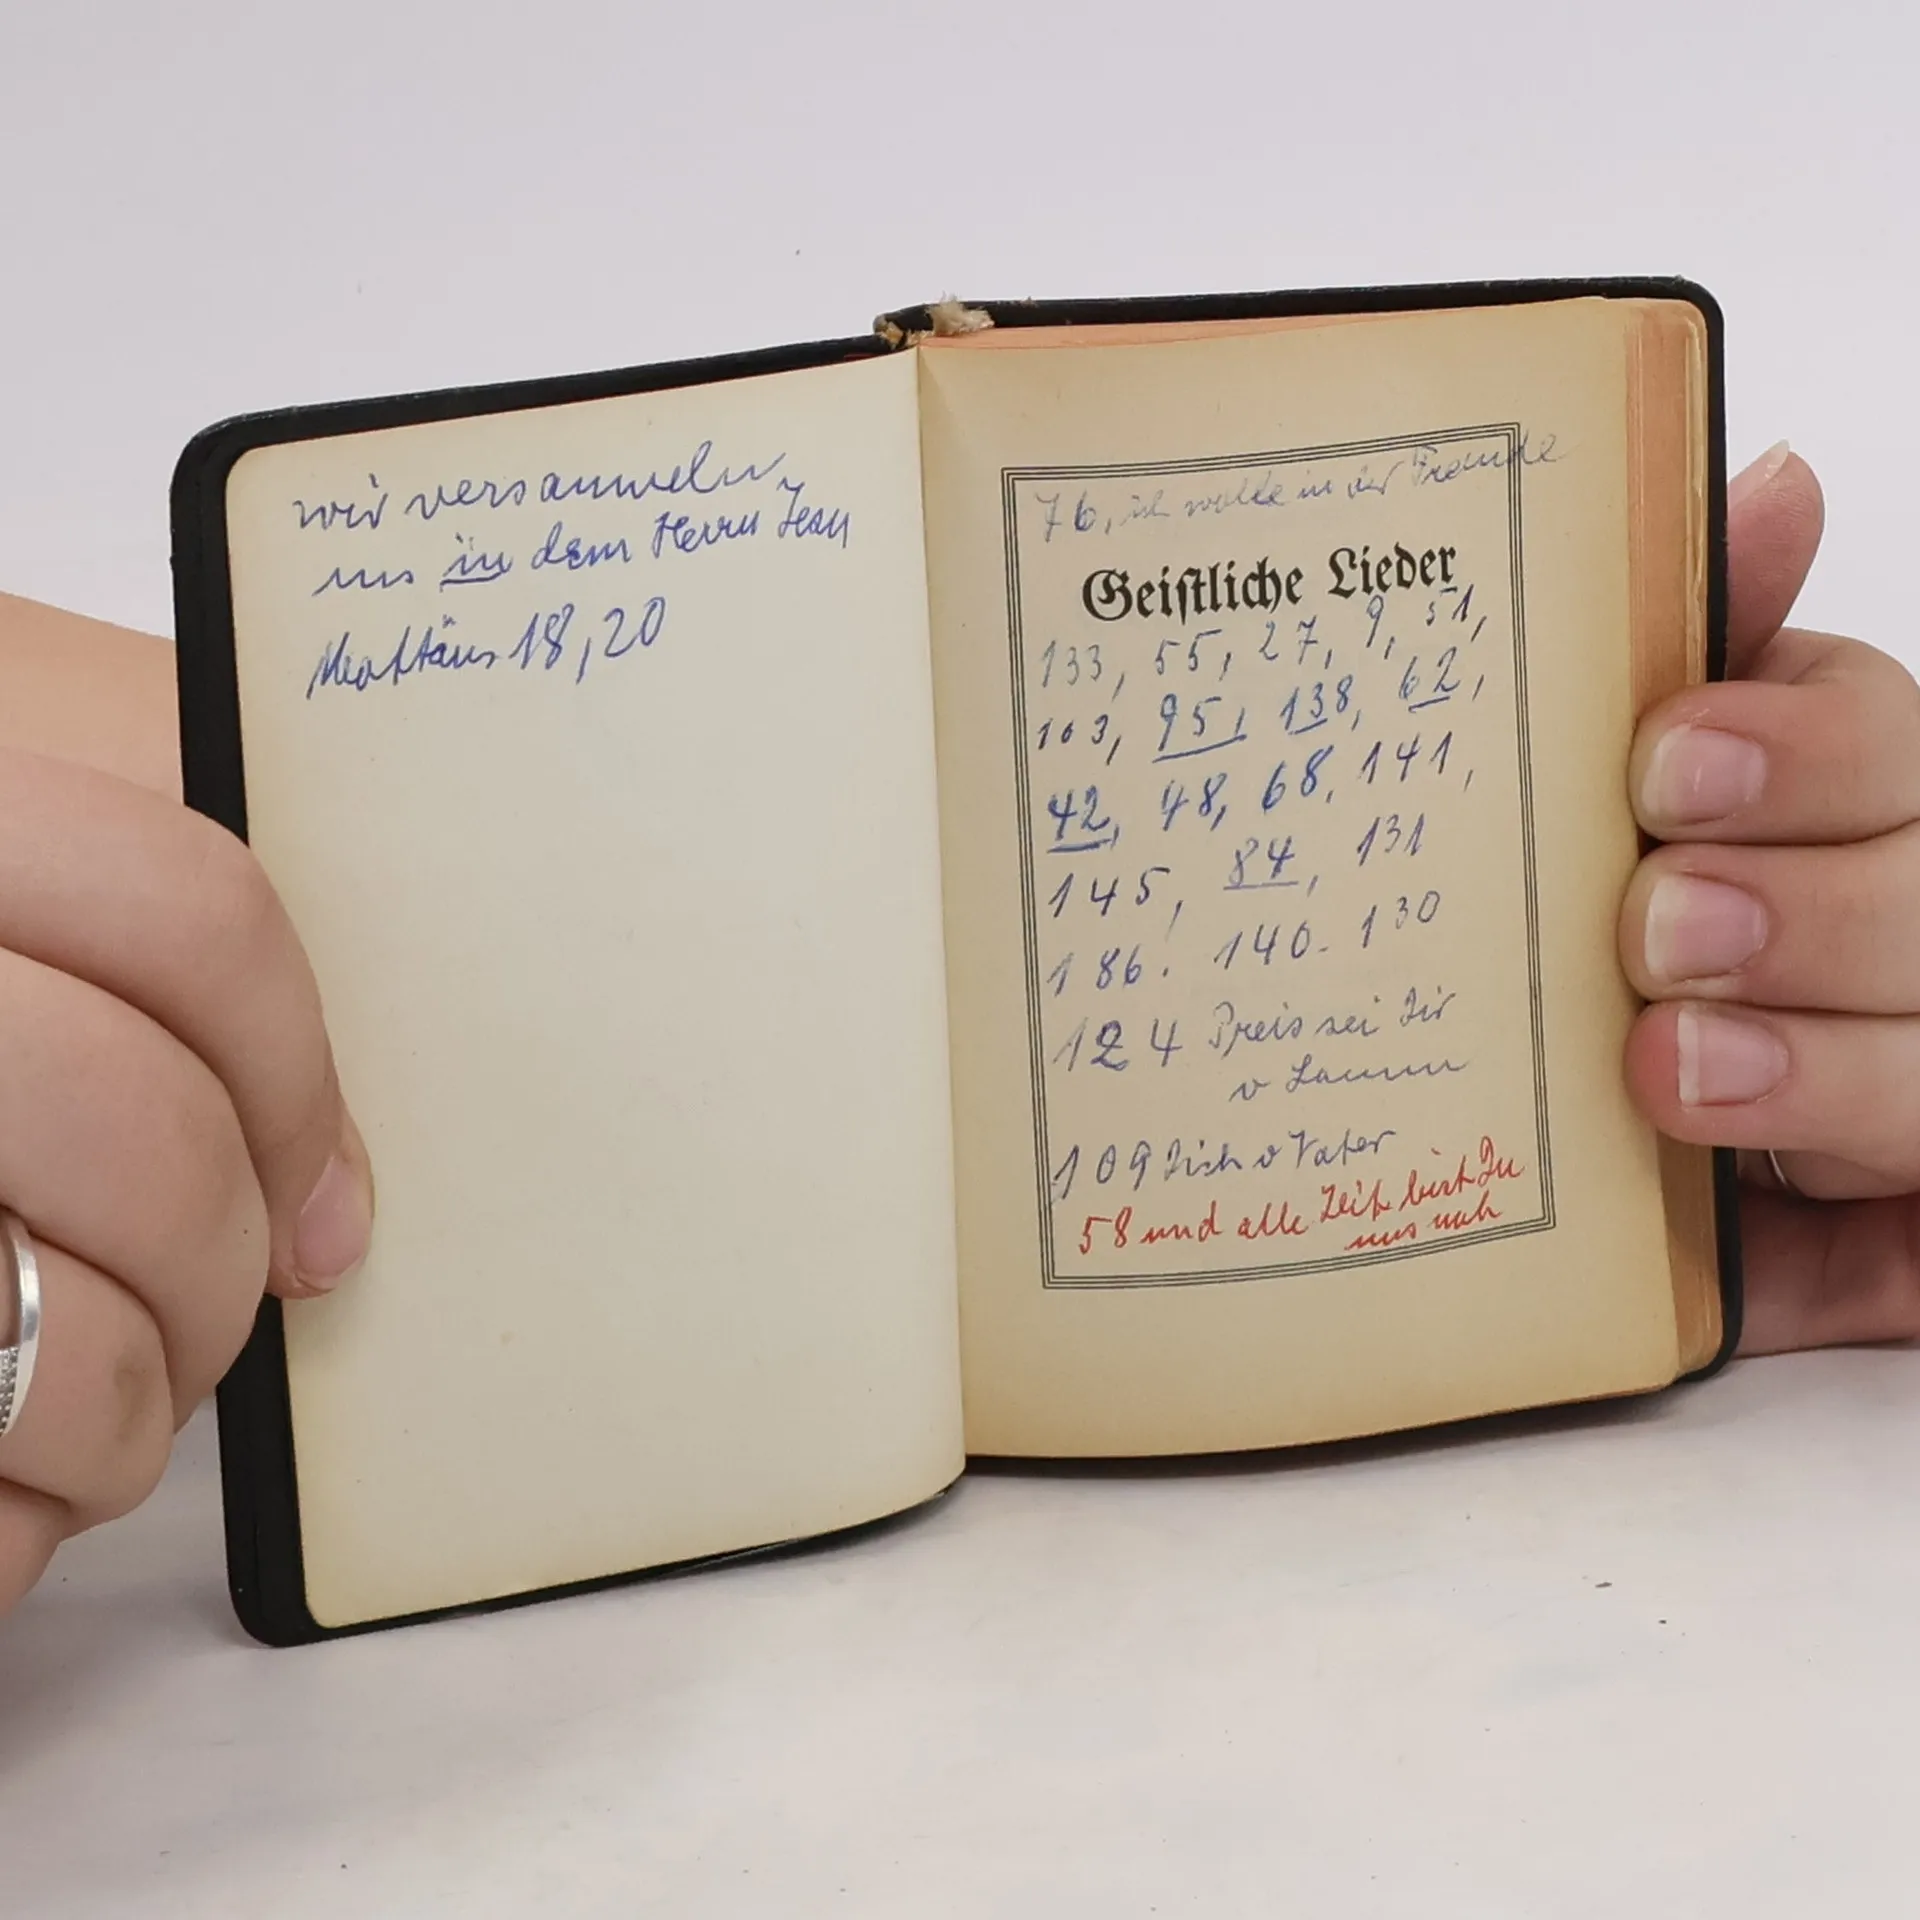 wir versammeln
uns in dem Herrn Jesu
Mattäus 18, 20
76, ich walle in der Fremde
Geistliche Lieder
133, 55, 27, 9, 51,
103, 95, 138, 62,
42, 48, 68, 141,
145, 84, 131
186. 140. 130
124 Preis sei Dir
o Lamm
109 Dich o Vater
58 und alle Zeit bist Du
uns nah